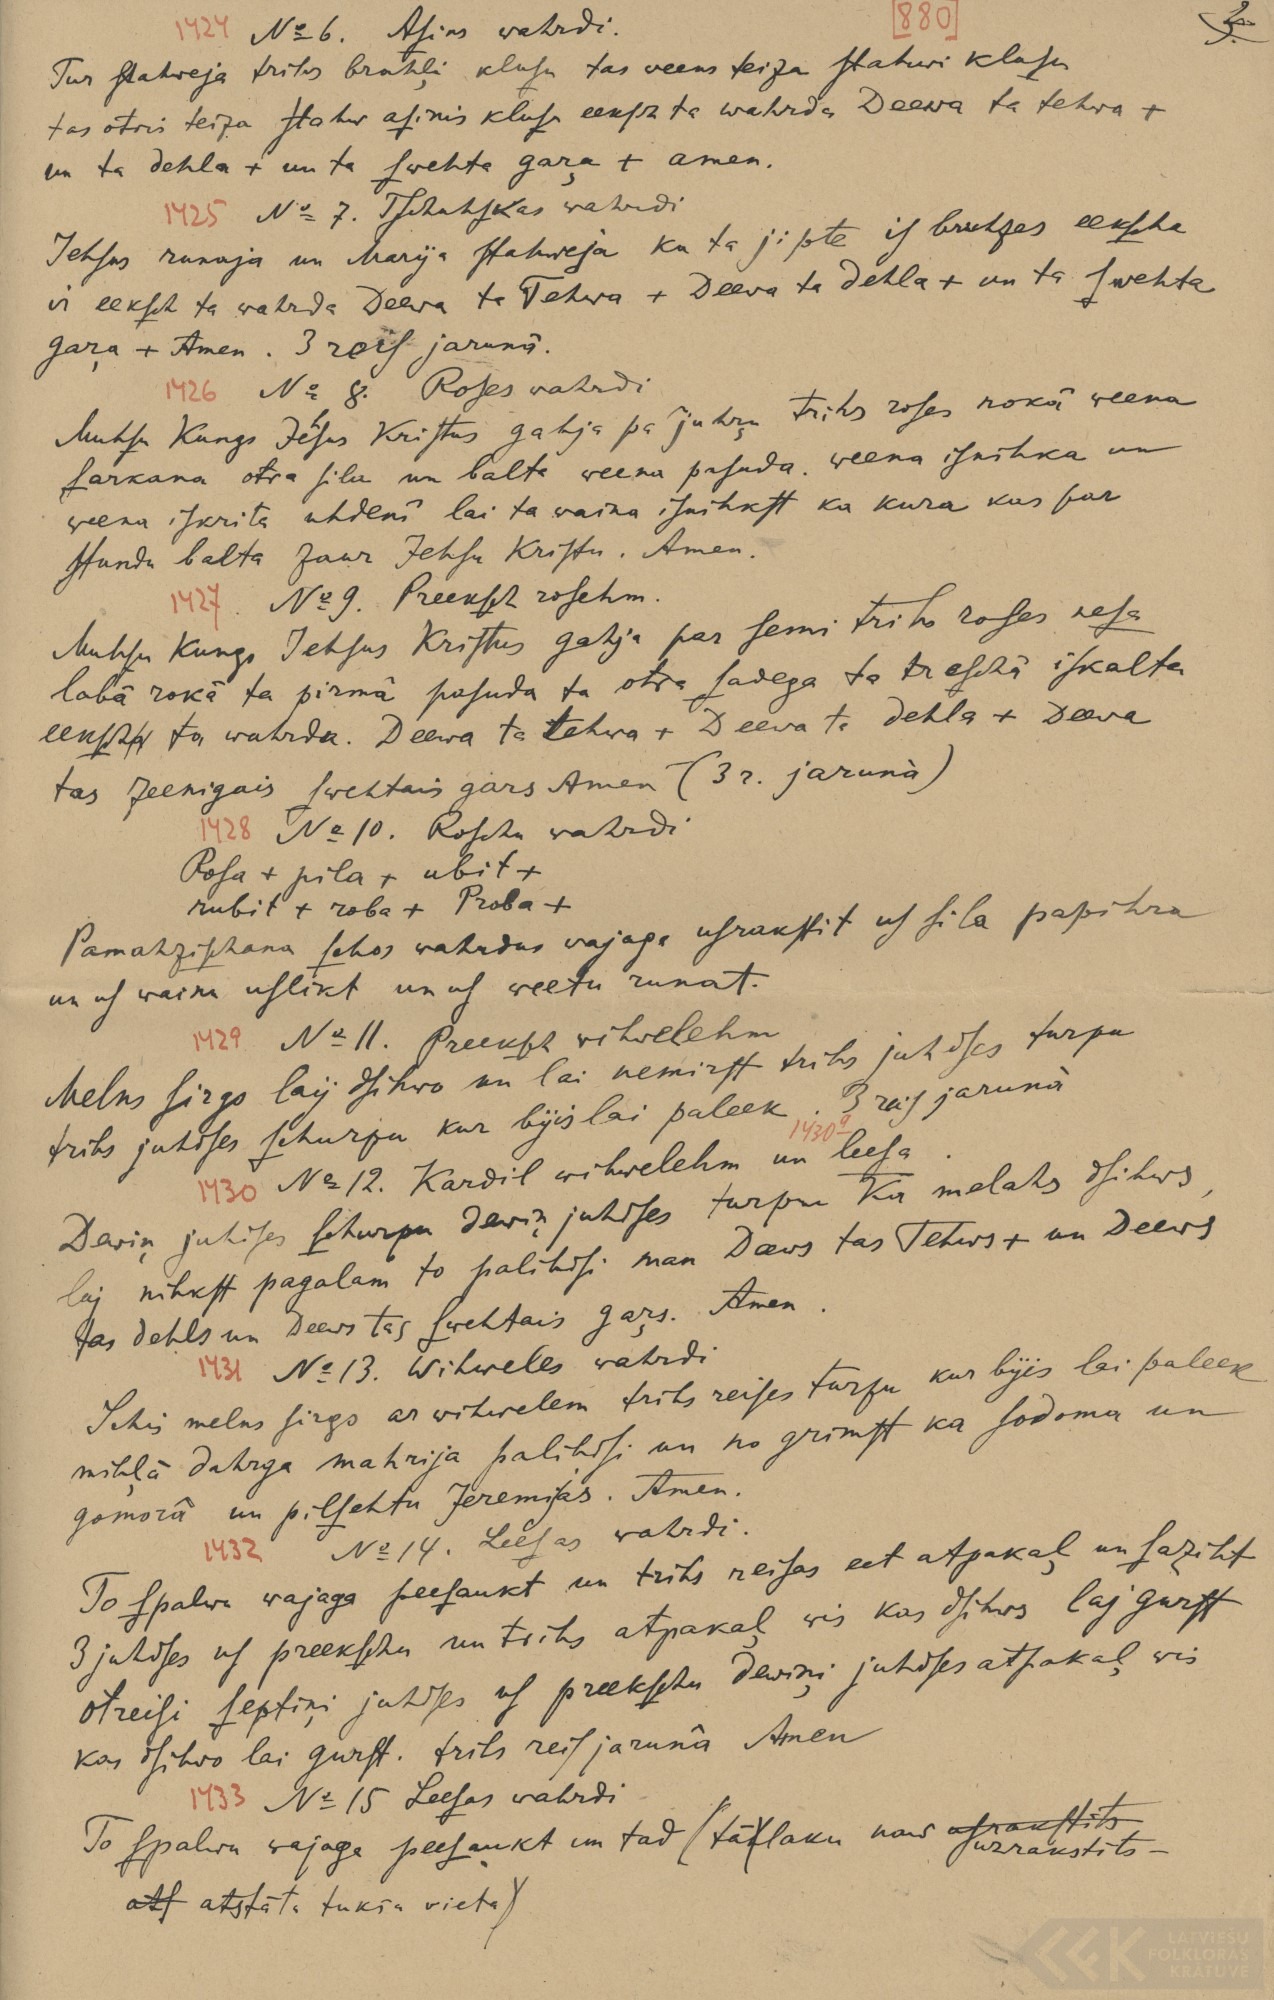 [880] 3.
1424 № 6. Aſins wahrdi.
Tur ſtahweja trihs bruhļi kluſu tas weens teiza ſtahwi kluſu
tas otris teiza ſtahw aſinis kluſu eekſch ta wahrda Deewa ta tehwa +
un ta dehla + un ta ſwehta gaŗa + amen.
1425 № 7. Tſchuhſkas wahrdi
Jehſus runaja un Marija ſtahweja ka ta ji pte iſ bruhzes eekſcha
vi eekſch ta wahrda Deewa ta Tehwa + Deewa ta dehla + un ta ſwehta
gaŗa + Amen. 3 reiſ jarunā.
1426 № 8. Roſes wahrdi
Muhſu Kungs Jehſus Kriſtus gahja pa juhŗu trihs roſes rokā weena
ſarkana otra ſila un balta weena paſuda. weena iſnihka un
weena iſkrita uhdenī lai ta waina iſnihkſt ka kura kas par
ſtundu balta zaur Jehſu Kriſtu. Amen.
1427. № 9. Preekſch roſehm.
Muhſu Kungs Jehſus Kriſtus gahja par ſemi trihs roſes neſa
labā rokā ta pirmā paſuda ta otra ſadega ta treſchā iſkalta
eekſch ta wahrda. Deewa ta tehwa + Deewa ta dehla + Deewa
tas zeenigais ſwehtais gars Amen (3 r. jarunā)
1428 № 10. Roſchu wahrdi
Roſa + pila + ubit +
rubit + roba + Proba +
Pamahziſchana ſchos wahrdus wajaga uſrakſtit uſ ſila papihra
un uſ wainu uſlikt un uſ weetu runat.
1429 № 11. Preekſch wihwelehm
Melns ſirgs laij dſihwo un lai nemirſt trihs juhdſes turpu
trihs juhdſes ſchurpu kur bijis lai paleek. 3 reiſ jarunā
1430 № 12. Kardil wihwelehm un 1430a leeſa.
Dewiņ juhdſes ſchurpu dewiņ juhdſes turpu Ka melahs dſihws,
laj nihkſt pagalam to palihdſi man Deews tas Tehws + un Deews
tas dehls un Deews tas ſwehtais gaŗs. Amen.
1431 № 13. Wihweles wahrdi
Schis melns ſirgs ar wihwelem trihs reiſes turpu kur bijis lai paleek
mihļā dahrga mahrija palihdſi un no grimſt ka ſodoma un
gomorā un pilſehtu Jeremijas. Amen.
1432 № 14. Leeſas wahrdi.
To ſpalwu wajaga peeſaukt un trihs reiſas eet atpakaļ un ſaziht
3 juhdſes uſ preekſchu un trihs atpakaļ wis kas dſihws laj gurſt
otreiſi ſeptiņi juhdſes uſ preekſchu dewiņi juhdſes atpakaļ wis
kas dſihwo lai gurſt. trihs reiſ jarunā Amen
1433 № 15 Leeſas wahrdi
To ſpalwu wajaga peeſaukt un tad (tāļaku naw uſrakſtits uzrakstits –
atſ atstāta tukša vieta)
LATVIEŠU
FOLKLORAS
KRĀTUVE